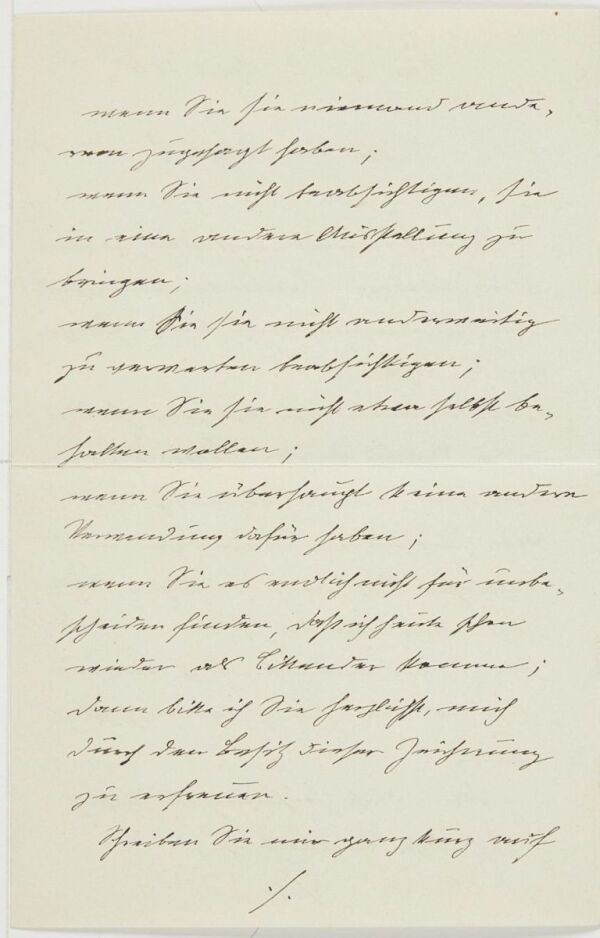 wenn Sie sie niemand ande-
ren zugesagt haben;
wenn Sie nicht beabsichtigen, sie
in eine andere Ausstellung zu
bringen;
wenn Sie sie nicht anderweitig
zu verwerten beabsichtigen;
wenn Sie sie nicht etwa selbst be-
halten wollen;
wenn Sie überhaupt keine andere
Verwendung dafür haben;
wenn Sie es endlich nicht für unbe-
scheiden finden, daß ich heute schon
wieder als Bittender komme;
dann bitte ich Sie herzlichst, mich
durch den Besitz dieser Zeichnung
zu erfreuen.
Schreiben Sie mir ganz kurz auf
./.